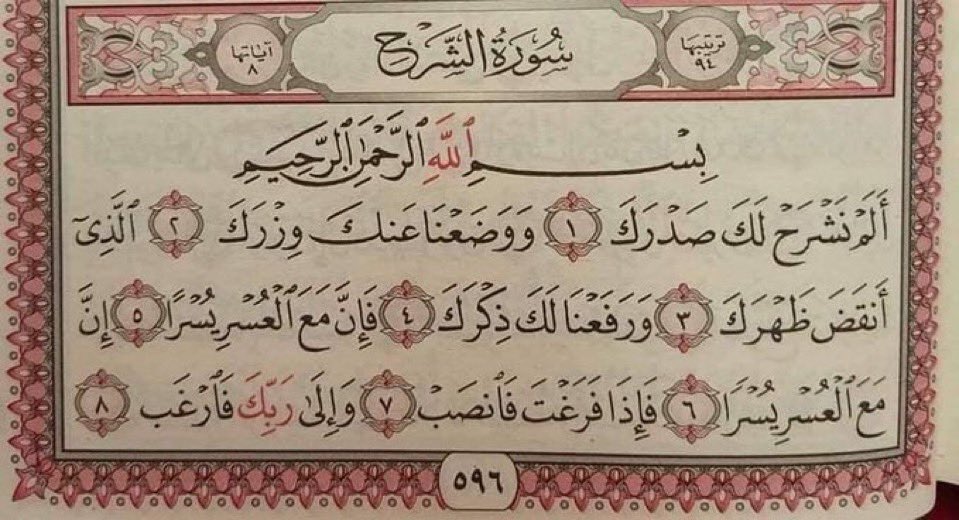 ترتيبها ٩٤ سُورَةُ الشَّرْحِ آيَاتها ٨
بِسْمِ ٱللَّهِ ٱلرَّحْمَٰنِ ٱلرَّحِيمِ
أَلَمْ نَشْرَحْ لَكَ صَدْرَكَ ١ وَوَضَعْنَا عَنكَ وِزْرَكَ ٢ ٱلَّذِىٓ
أَنقَضَ ظَهْرَكَ ٣ وَرَفَعْنَا لَكَ ذِكْرَكَ ٤ فَإِنَّ مَعَ ٱلْعُسْرِ يُسْرًا ٥ إِنَّ
مَعَ ٱلْعُسْرِ يُسْرًا ٦ فَإِذَا فَرَغْتَ فَٱنصَبْ ٧ وَإِلَىٰ رَبِّكَ فَٱرْغَب ٨
٥٩٦